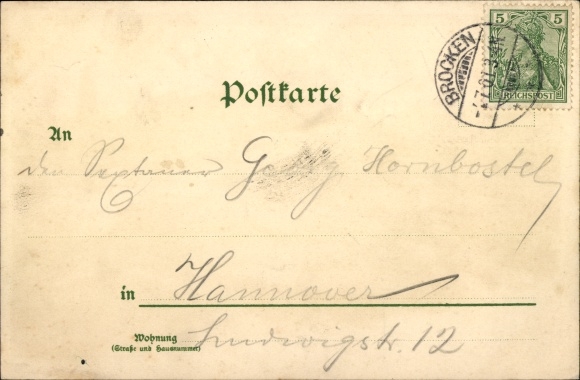 5 5
REICHSPOST
BROCKEN
Postkarte
An
den Sextaner Georg Hornbostel
in Hannover
Wohnung
(Straße und Hausnummer)
Ludwigstr. 12